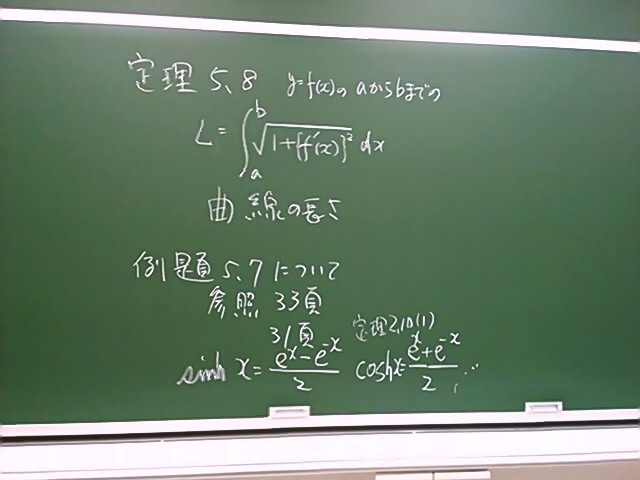 定理 5、8 y=f(x)の aからbまでの
L = ∫_a^b √1+{f'(x)}² dx
曲線の長さ
例題 5、7 について
参照 33頁
31頁 定理2,10(1)
sinh x = (eˣ - e⁻ˣ)/2 cosh x = (eˣ + e⁻ˣ)/2 , …